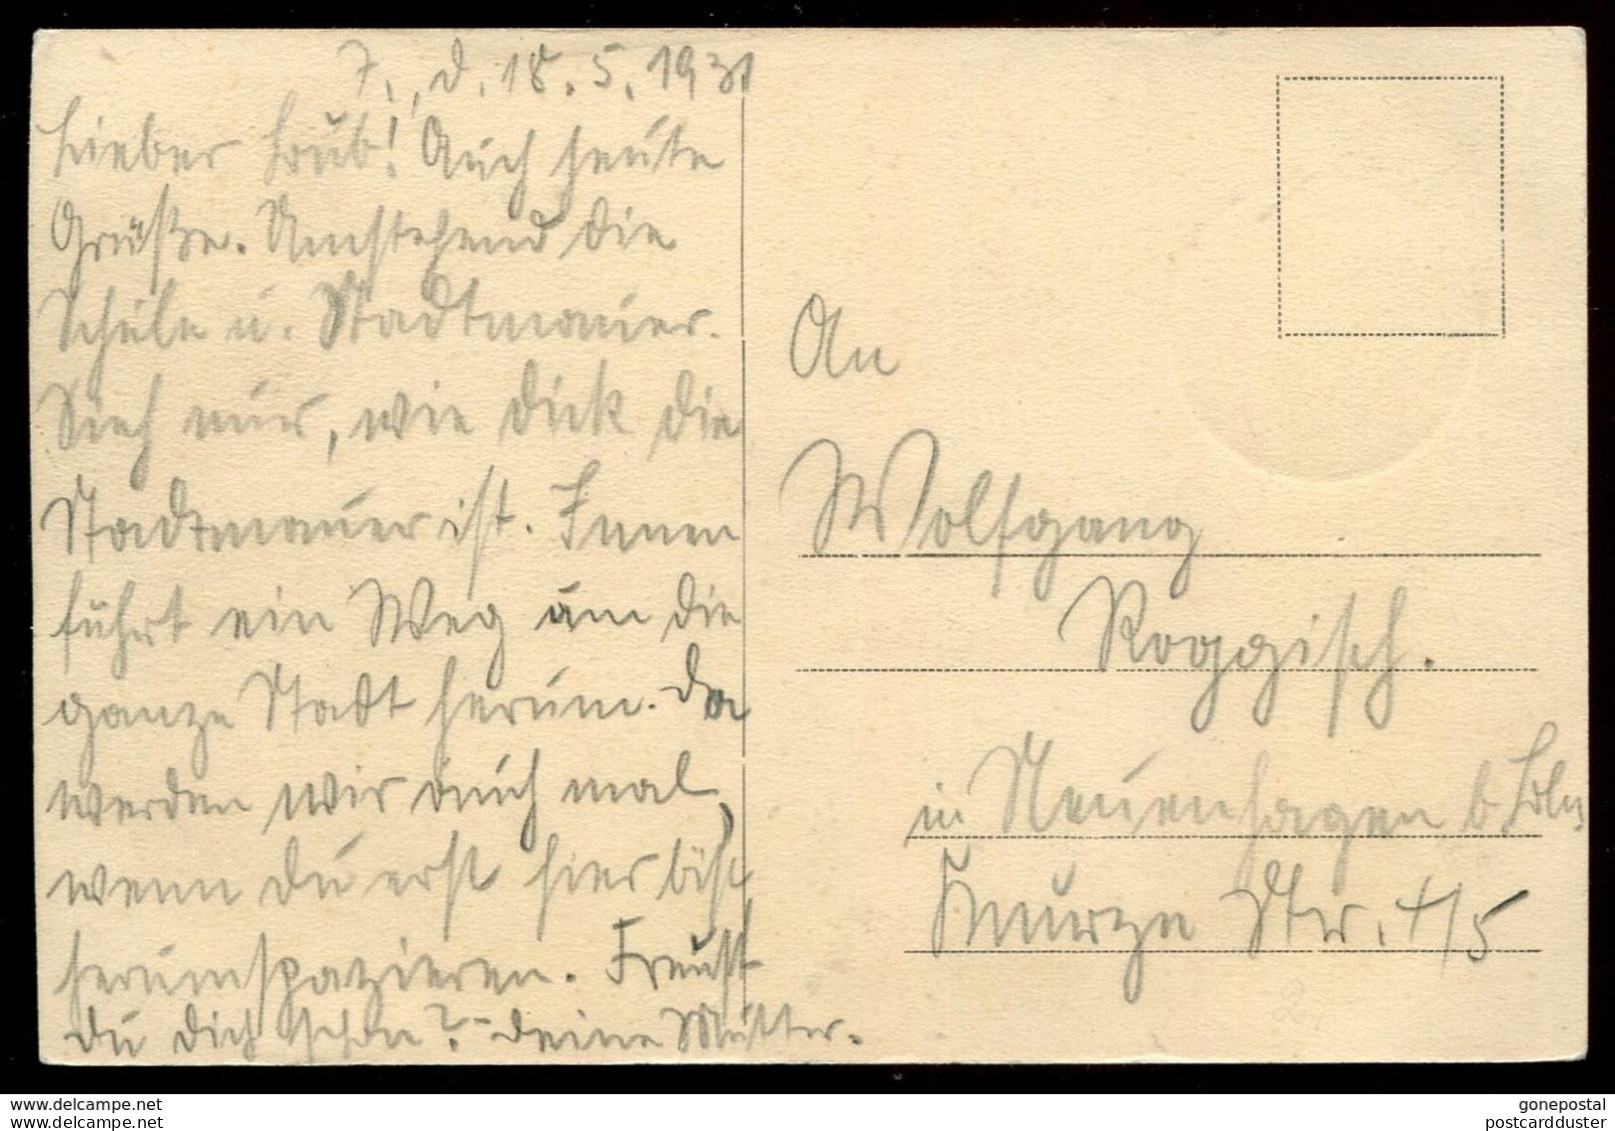 7., d. 18. 5. 1931
Lieber Bub! Auch heute
Grüße. Umstehend die
Schule u. Stadtmauer.
Sieh nur, wie dick die
Stadtmauer ist. Innen
führt ein Weg um die
ganze Stadt herum. Da
werden wir auch mal,
wenn du erst hier bist
herumspazieren. Freust
du dich schon? - Deine Mutter.
An
Wolfgang
Roggisch.
in Neuenhagen b.
Str. 4/5
2.
delcampe.net
gonepostal
postcardduster